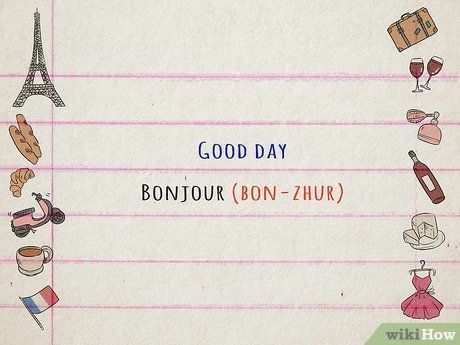 GOOD DAY
BONJOUR (BON-ZHUR)
wikiHow